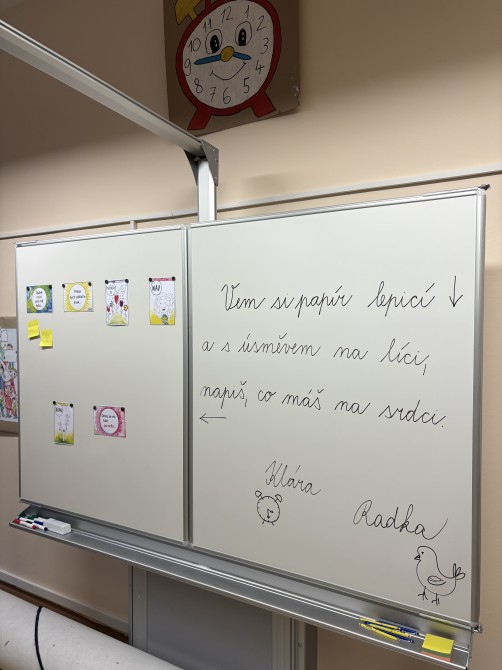 12
11
1
10
2
9
3
8
4
7
5
6
Vem si papír lepicí ↓
a s úsměvem na líci,
napiš, co máš na srdci.
←
Klára
Radka